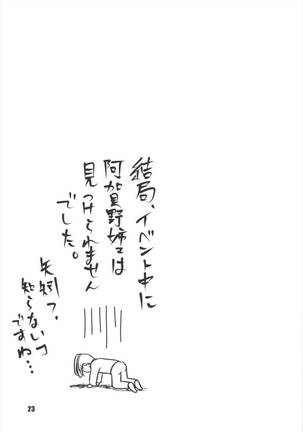 結局、イベント中に
阿賀野姉ェは
見つけられません
でした。
矢矧？、
知らないコ
ですね…
23